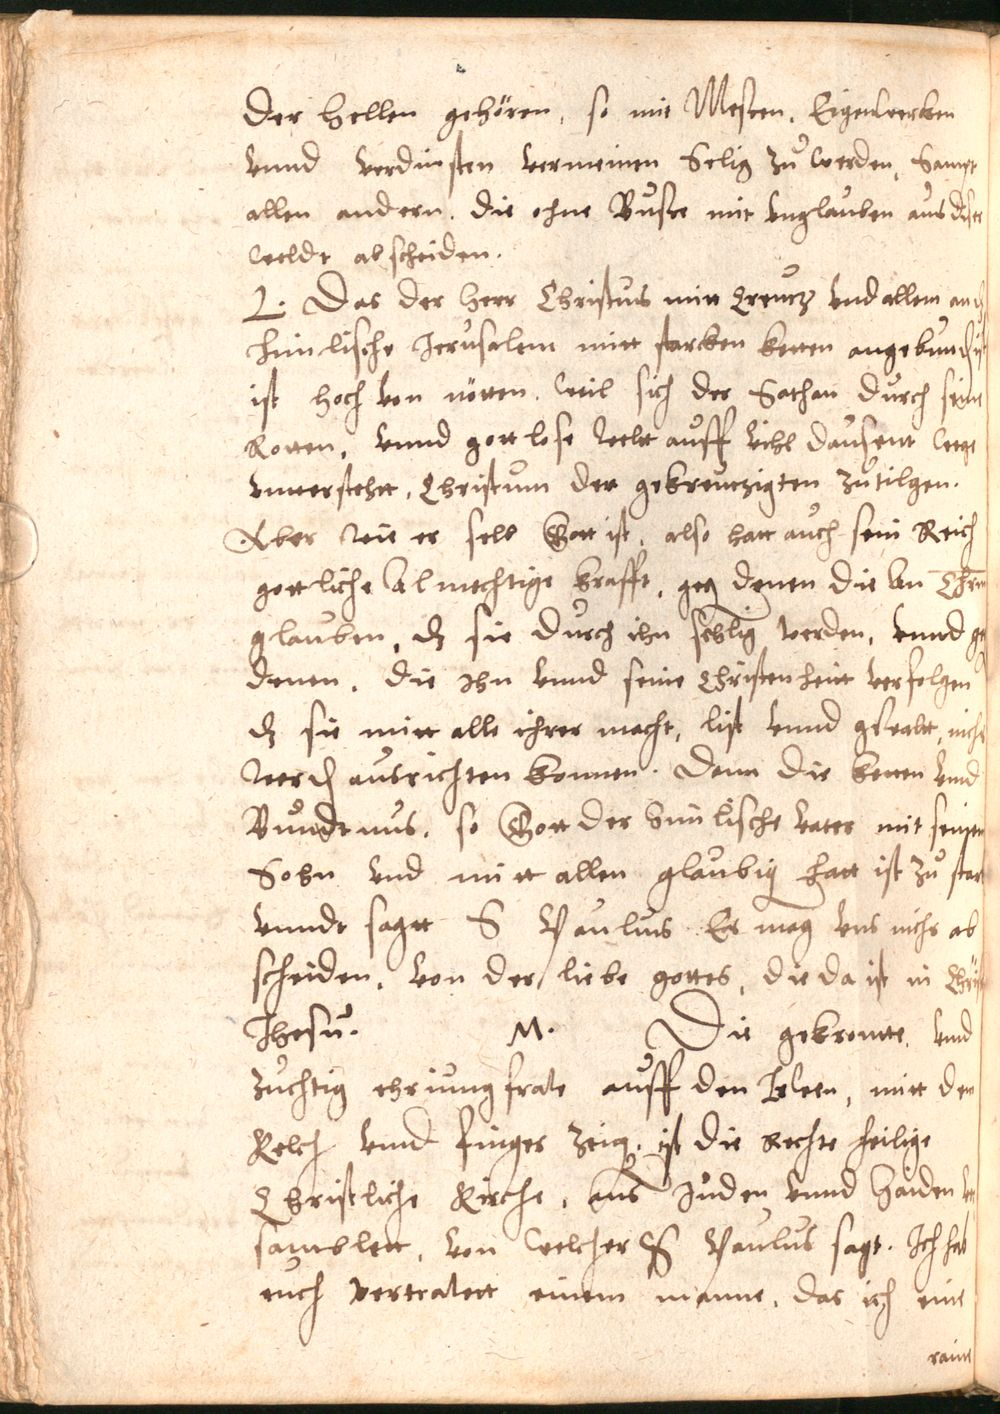 der Hellen gehören, so mit Messen, Eigenwerken
vnnd verdinsten vermeinen Selig zů werden, Sampt
allen andern, die ohne Busse mit vnglauben aus diser
weldt abscheiden.
L. Das der Herr Christus mitt Creutz vnd allem an dz
himlische Jerusalem mitt starcken ketten angebunden ist
ist hoch von nötten, weil sich der Sathan durch seine
Rotten, vnnd gottlose weltt auff vihl dausentt wege
vnttersteht, Christum den gekreutzigten zůtilgen.
Aber wie er selb Gott ist, also hatt auch sein Reich
gottliche Almechtige krafft, geg denen die an Chrm
glauben, dz sie durch ihn sehlig werden, vnnd ge
denen, die Ihn vnnd seine Christenheitt verfolgen
dz sie mitt alle ihrer macht, list vnnd gwaltt, nichs
werden ausrichten konnen. Denn die ketten vnd
Bůndtnus, so Gott der himlische vater mit seinem
Sohn vnd mitt allen glaubig hatt ist zů star
vnndt sagtt S Paulus Es mag vns nichs ab
scheiden, von der liebe gottes, die da ist in Christ
Jhesu. M. Die gekrontte, vnd
züchtig ehrjungfraw auff den , mitt dem
Kelch vnnd finger zeig, ist die Rechte heilige
Christliche Kirche, aus Juden vnnd Haiden ver
samblett, von welcher S Paulus sagt. Ich hab
euch vertrawtt einem manne, das ich eine
raine